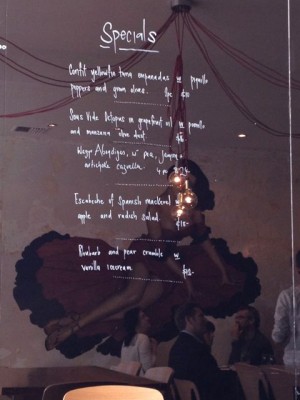 Specials
Confit yellowfin tuna empanadas w piquillo
peppers and green olives. 3pc
Sous Vide Octopus in grapefruit oil w
and manzana olive dust.
Wagyu w pea,
artichoke cazuela. 4
Escabeche of Spanish mackerel w
apple and radish salad.
Rhubarb and pear crumble w
vanilla icecream.